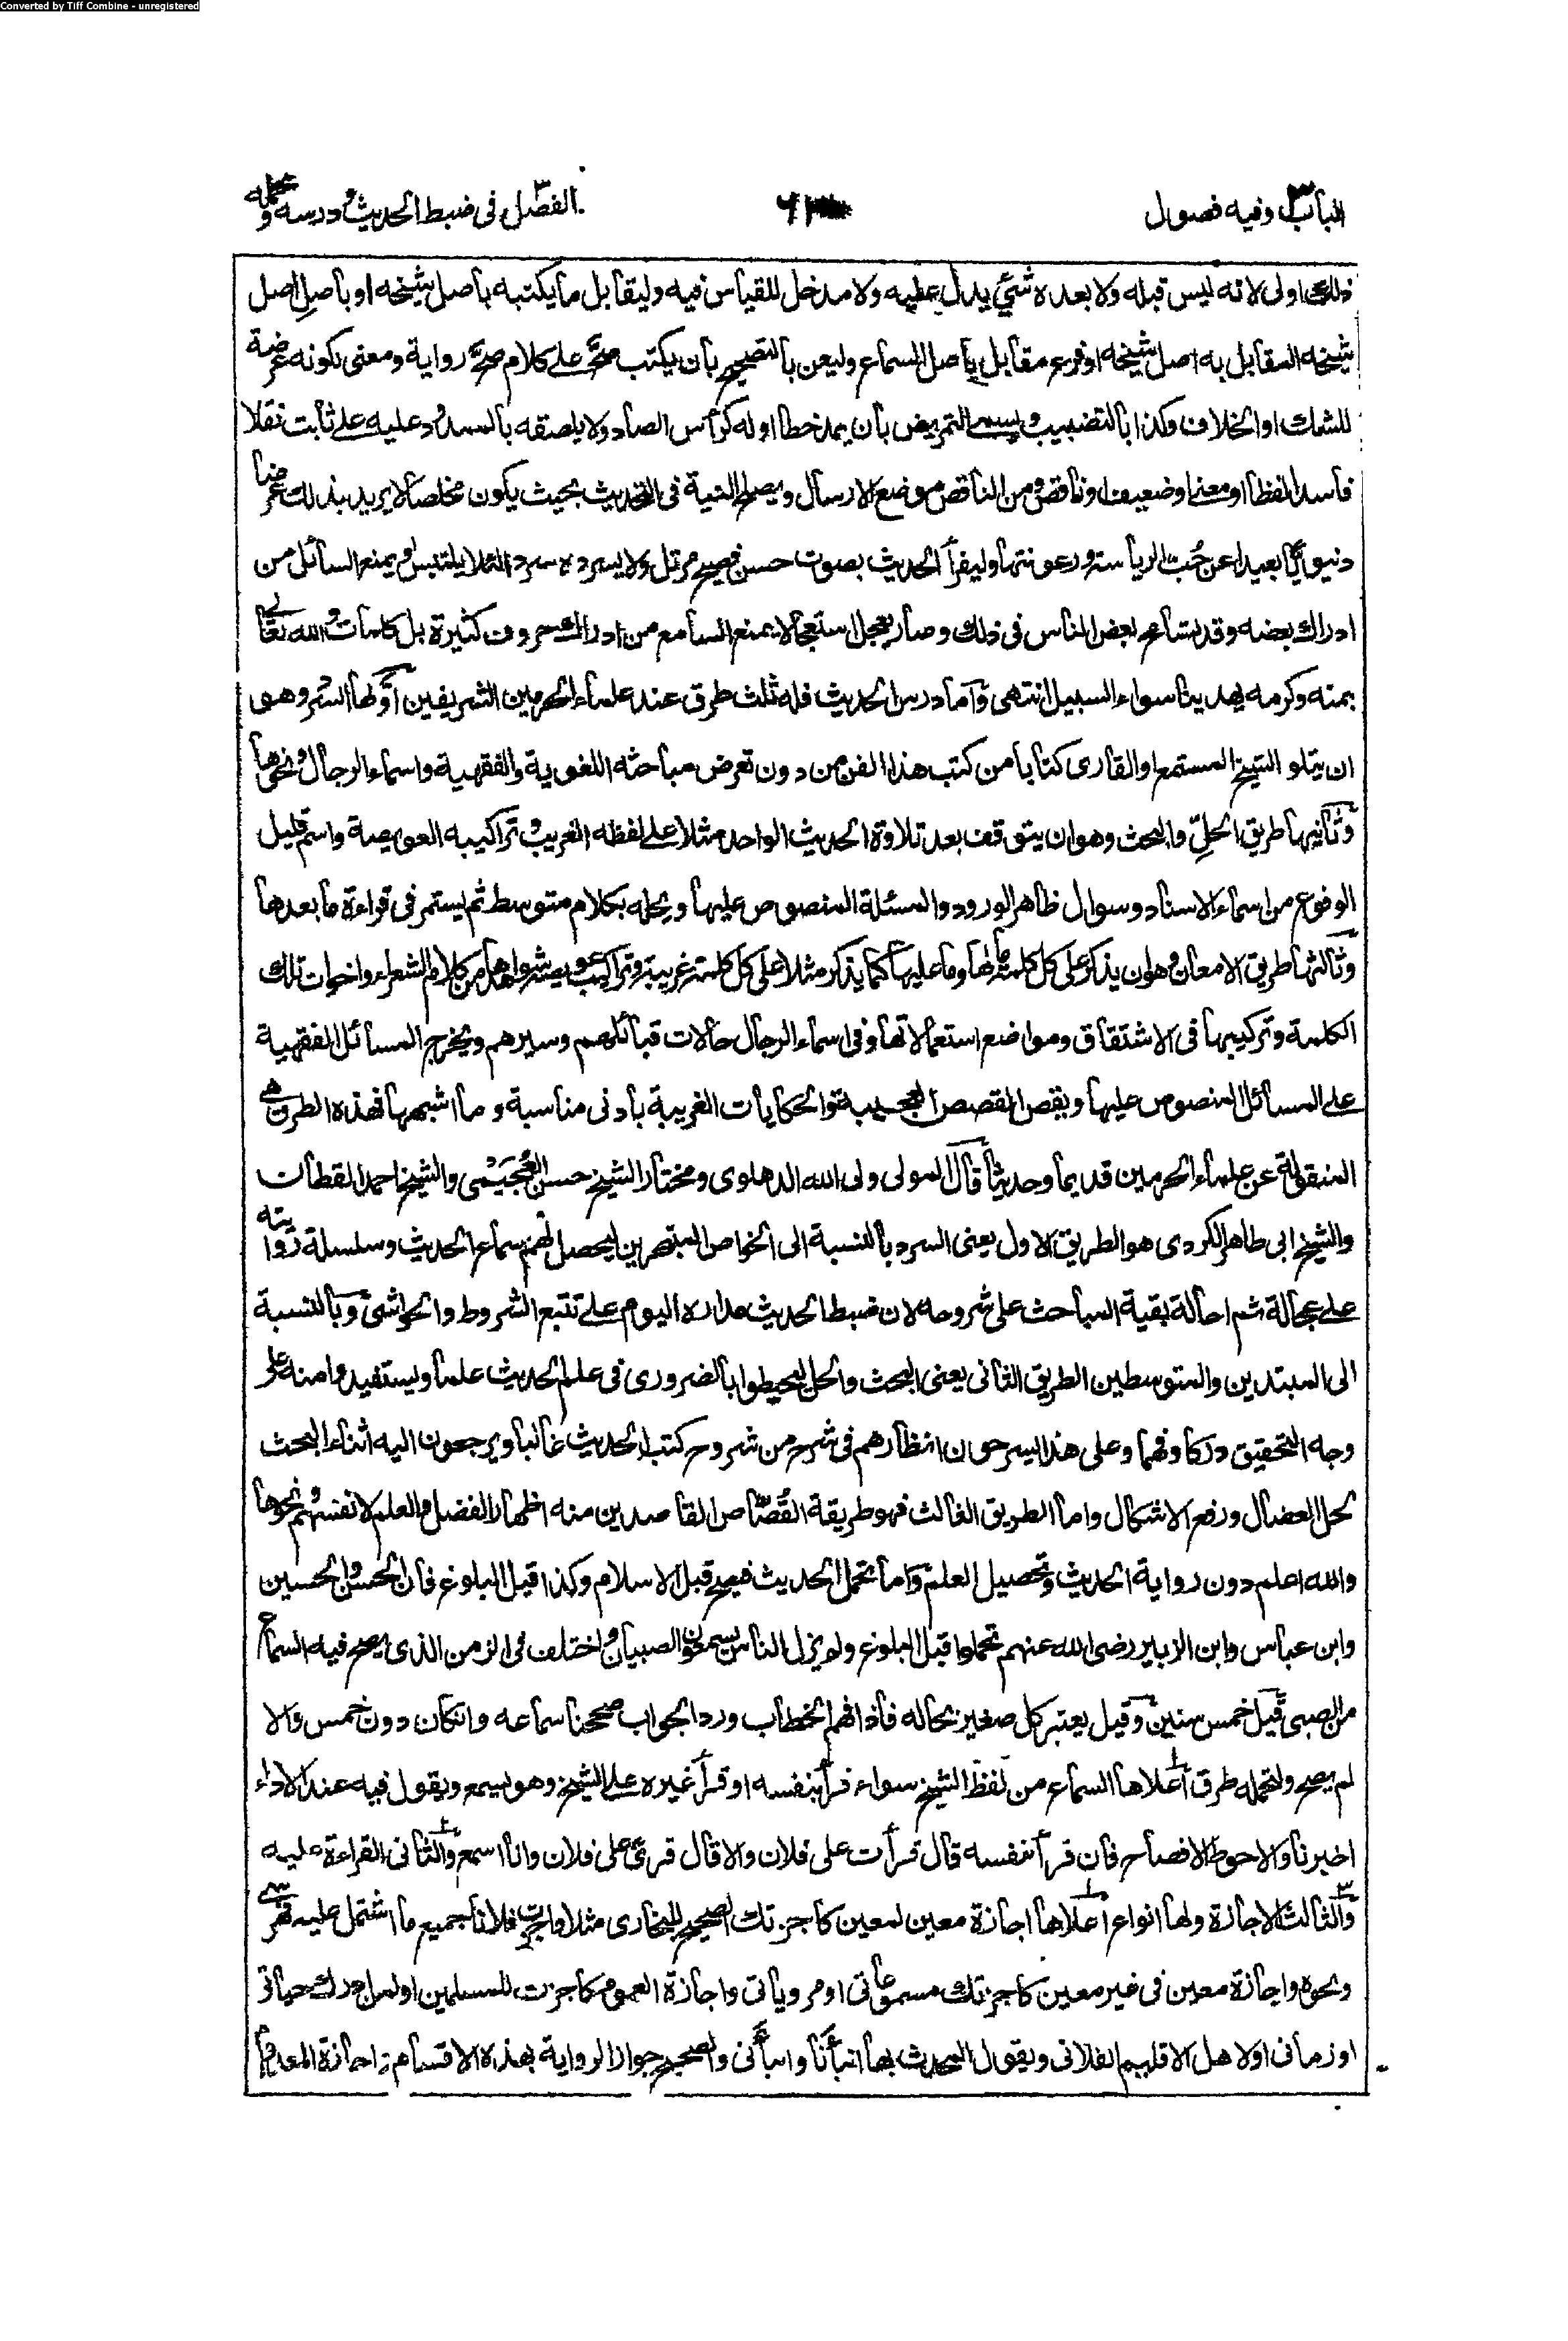 Converted by Tiff Combine - unregistered
الباب٣ وفيه فصول
٦١
الفصل٣ فى ضبط الحديث ودرسه وتحمله
ذلك اولى لانه ليس قبله ولا بعده شئ يدل عليه ولا مدخل للقياس فيه وليقابل ما يكتبه باصل شيخه او باصل اصل
شيخه المقابل به اصل شيخه او فرع مقابل باصل السماع وليعن بالتصحيح بان يكتب صح على كلام صح رواية ومعنى لكونه عرضة
للشك او الخلاف وكذا بالتضبيب ويسمى التمريض بان يمد خطا اوله كرأس الصاد ولا يلصقه بالممدود عليه على ثابت نقلا
فاسد لفظا او معنى او ضعيف او ناقص ومن الناقص موضع الارسال ويصلح النية فى التحديث بحيث يكون مخلصا لا يريد بذلك عرضا
دنيويا بعيدا عن حُب الرياسة ورعونتها وليقرأ الحديث بصوت حسن فصيح مرتل ولا يسرده سردا لئلا يلتبس او يمنع السائل من
ادراك بعضه وقد تسامح بعض الناس فى ذلك وصار يعجل استعجالا يمنع السامع من ادراك حروف كثيرة بل كلمات والله تعالى
بمنه وكرمه يهدينا سواء السبيل انتهى وآما درس الحديث فله ثلث طرق عند علماء الحرمين الشريفين اوّلها السّرد وهو
ان يتلو الشيخ المستمع او القارى كتابا من كتب هذا الفن من دون تعرض مباحثه اللغوية والفقهية واسماء الرجال ونحوها
وثانيها طريق الحلّ والبحث وهو ان يتوقف بعد تلاوة الحديث الواحد مثلا على لفظه الغريب وتراكيبه العويصة واسم قليل
الوقوع من اسماء الاسناد وسوال ظاهر الورود والمسئلة المنصوص عليها ويحله بكلام متوسط ثم يستمر فى قراءة ما بعدها
وثالثها طريق الامعان وهو ان يذكر على كل كلمة ما لها وما عليها كما يذكر مثلا على كل كلمة غريبة وتراكيب عويصة شواهدها من كلام الشعراء واخوات تلك
الكلمة وتركيبها فى الاشتقاق ومواضع استعمالاتها وفى اسماء الرجال حالات قبائلهم وسيرهم ويخرج المسائل الفقهية
على المسائل المنصوص عليها ويقص القصص العجيبة والحكايات الغريبة بادنى مناسبة وما اشبهها فهذه الطرق هى
المنقولة عن علماء الحرمين قديما وحديثا قال المولى ولى الله الدهلوى ومختار الشيخ حسن العُجَيْمى والشيخ احمد القطان
والشيخ ابى طاهر الكردى هو الطريق الاول يعنى السرد بالنسبة الى الخواص المتبحرين ليحصل لهم سماع الحديث وسلسلة روايته
على عجالة ثم احالة بقية المباحث على شروحه لان ضبط الحديث مداره اليوم على تتبع الشروط والحواشى وبالنسبة
الى المبتدين والمتوسطين الطريق الثانى يعنى البحث والحل ليحيطوا بالضرورى فى علم الحديث علما ويستفيدوا منه على
وجه التحقيق دركا وفهما وعلى هذا يسرحون انظارهم فى شرح من شروح كتب الحديث غالبا ويرجعون اليه اثناء البحث
لحل العضال ورفع الاشكال واما الطريق الثالث فهو طريقة القُصّاص القاصدين منه اظهار الفضل والعلم لانفسهم ونحوها
والله اعلم دون رواية الحديث وتحصيل العلم وآما تحمل الحديث فيصح قبل الاسلام وكذا قبل البلوغ فان الحسن والحسين
وابن عباس وابن الزبير رضى الله عنهم تحملوا قبل البلوغ ولم يزل الناس يسمعون الصبيان واختلف فى الزمن الذى يصح فيه السماع
من الصبى قيل خمس سنين وقيل يعتبر كل صغير بحاله فاذا فهم الخطاب ورد الجواب صححنا سماعه وانكان دون خمس والا
لم يصح ولتحمله طرق اعلاها السماع من لفظ الشيخ سواء قرأ بنفسه او قرأ غيره على الشيخ وهو يسمع ويقول فيه عند الاداء
اخبرنا والاحوط الافصاح فان قرأ بنفسه قال قرأت على فلان والا قال قرئ على فلان وانا اسمع والثانى القراءة عليه
والثالث الاجازة ولها انواع اعلاها اجازة معين لمعين كاجزتك الصحيح للبخارى مثلا واجزت فلانا جميع ما اشتمل عليه فهرستى
ونحوه واجازة معين فى غير معين كاجزتك مسموعاتى او مروياتى واجازة العموم كاجزت للمسلمين او لمن ادرك حياتى
او زمانى او لاهل الاقليم الفلانى ويقول المحدث بها انبأنا وانبأنى والصحيح جواز الرواية بهذه الاقسام واجازة المعدوم